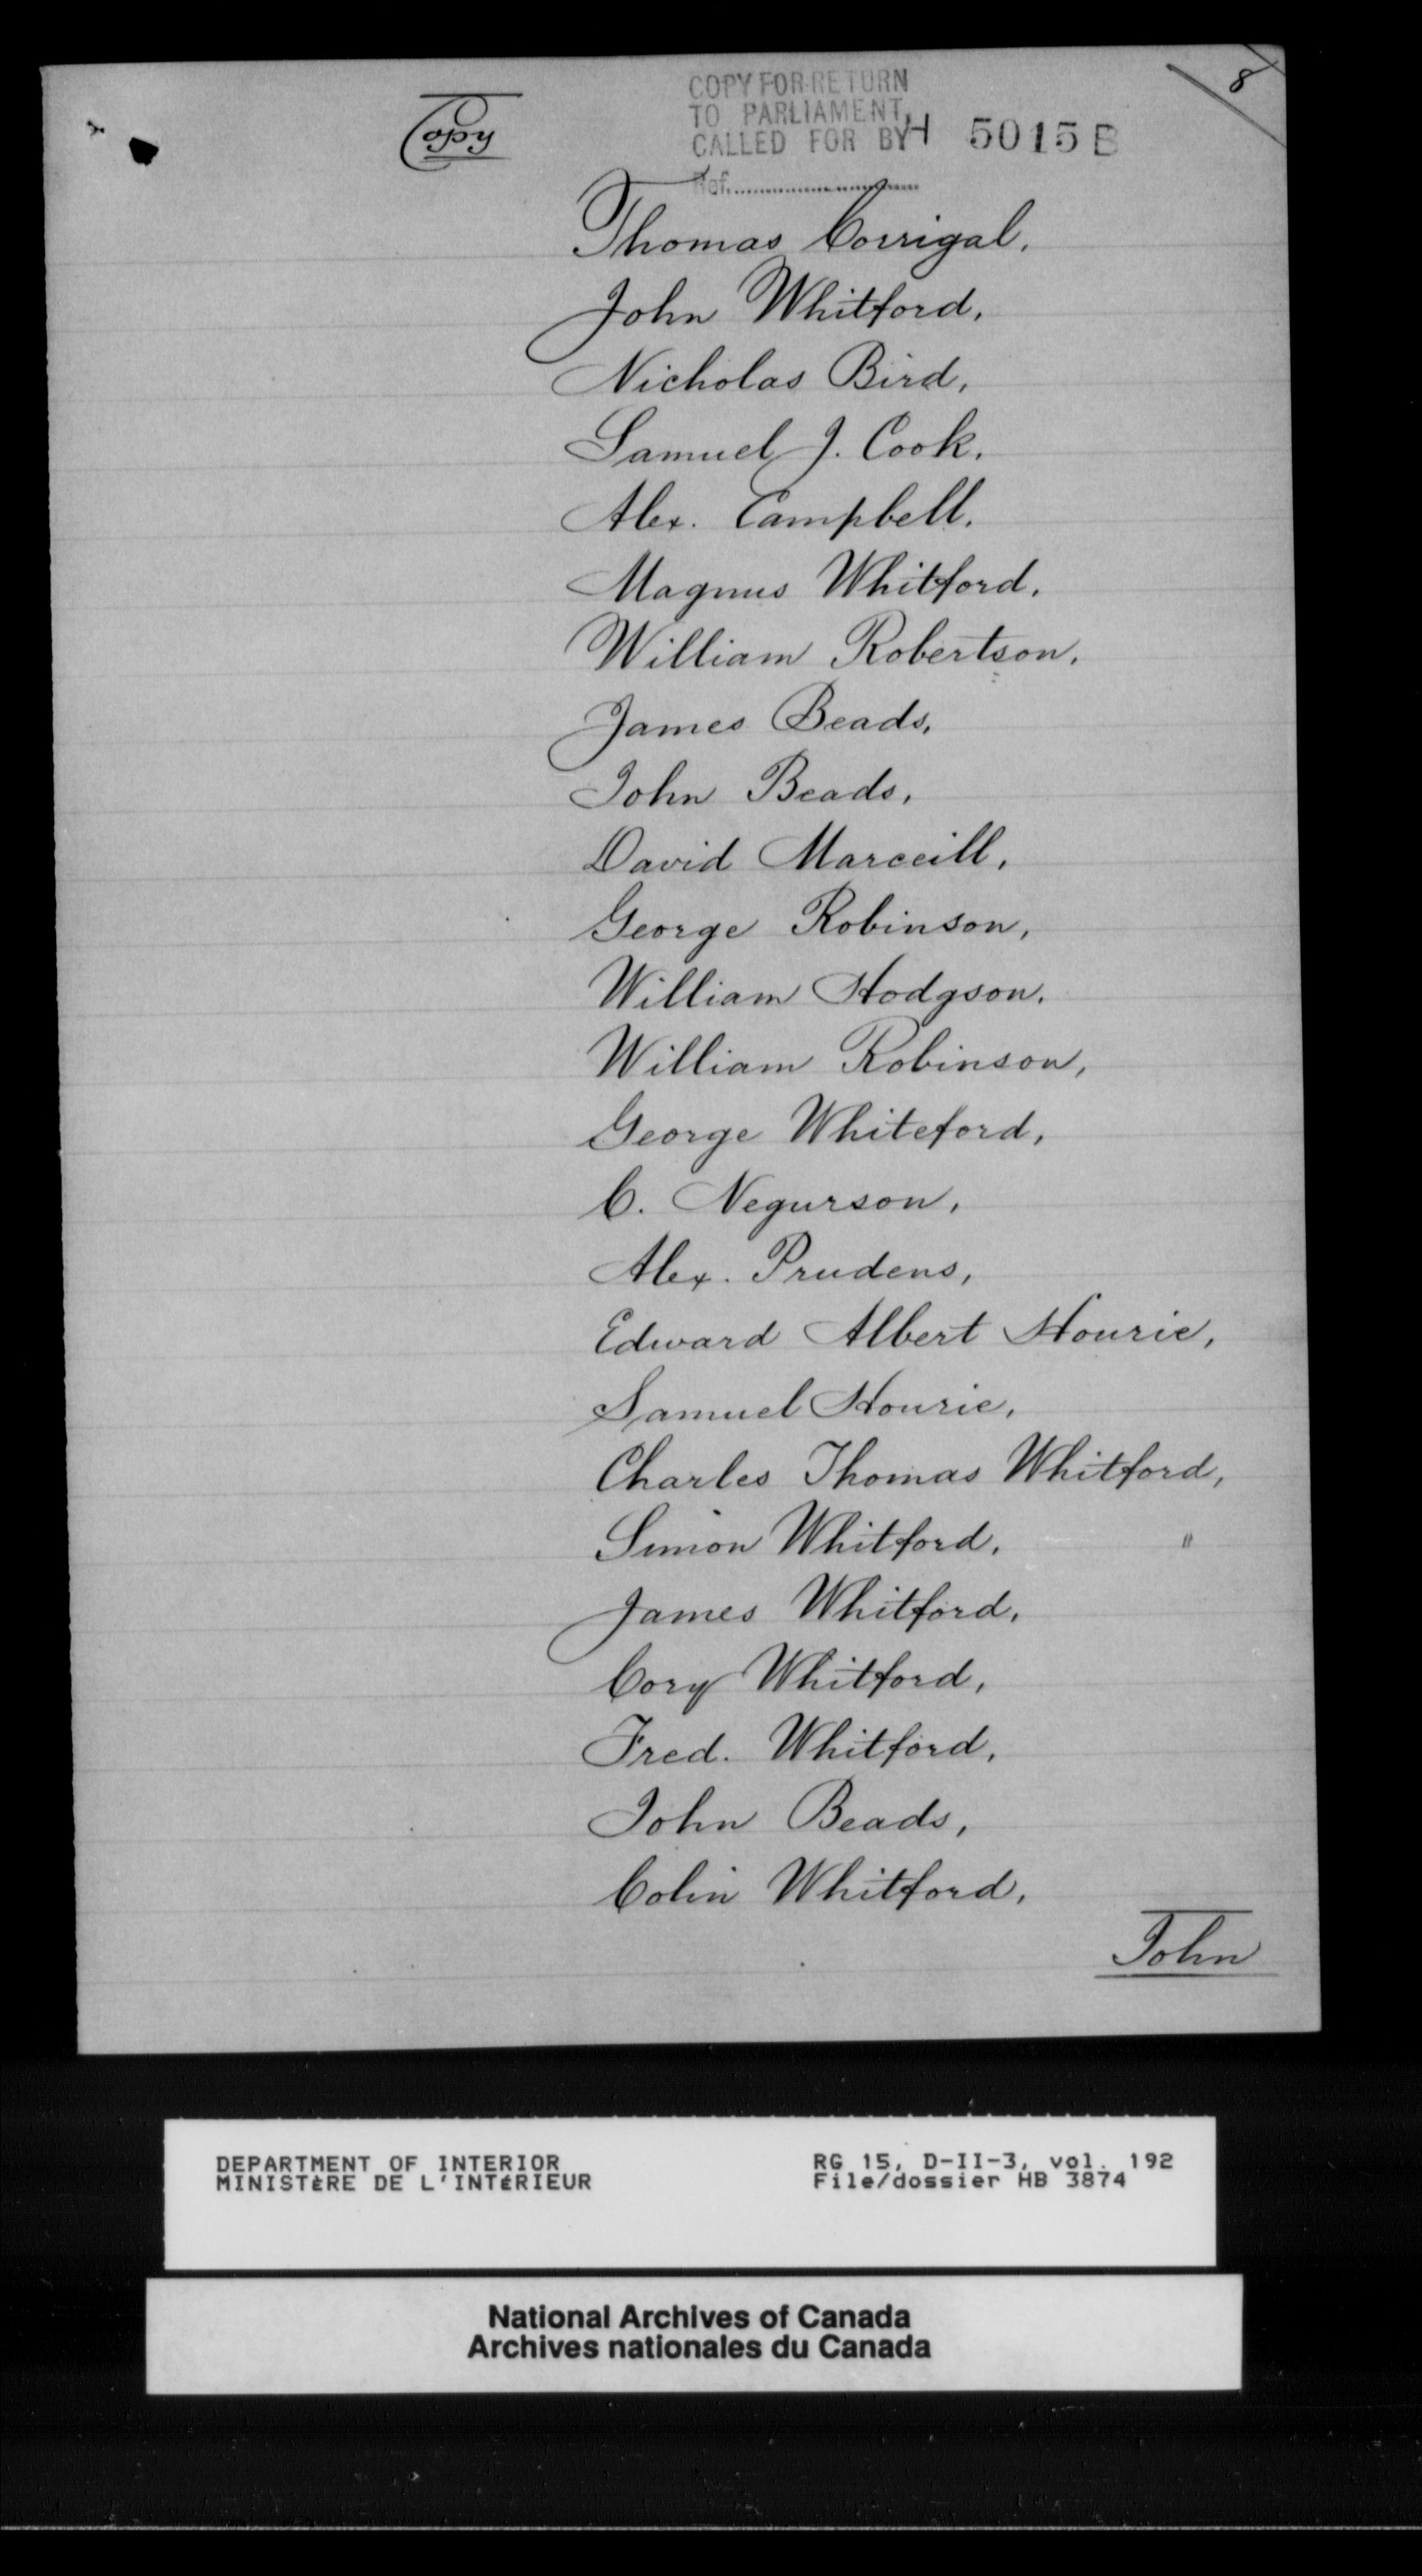 8
Copy
COPY FOR RETURN
TO PARLIAMENT,
CALLED FOR BY H 5015 B
Ref.
Thomas Corrigal.
John Whitford,
Nicholas Bird,
Samuel J. Cook.
Alex. Campbell.
Magnus Whitford.
William Robertson.
James Beads,
John Beads,
David Marceill,
George Robinson,
William Hodgson.
William Robinson,
George Whiteford,
C. Negurson,
Alex. Prudens,
Edward Albert Hourie,
Samuel Hourie,
Charles Thomas Whitford,
Simon Whitford. "
James Whitford,
Cory Whitford,
Fred. Whitford,
John Beads,
Colin Whitford,
John
DEPARTMENT OF INTERIOR RG 15, D-II-3, vol. 192
MINISTÈRE DE L'INTÉRIEUR File/dossier HB 3874
National Archives of Canada
Archives nationales du Canada